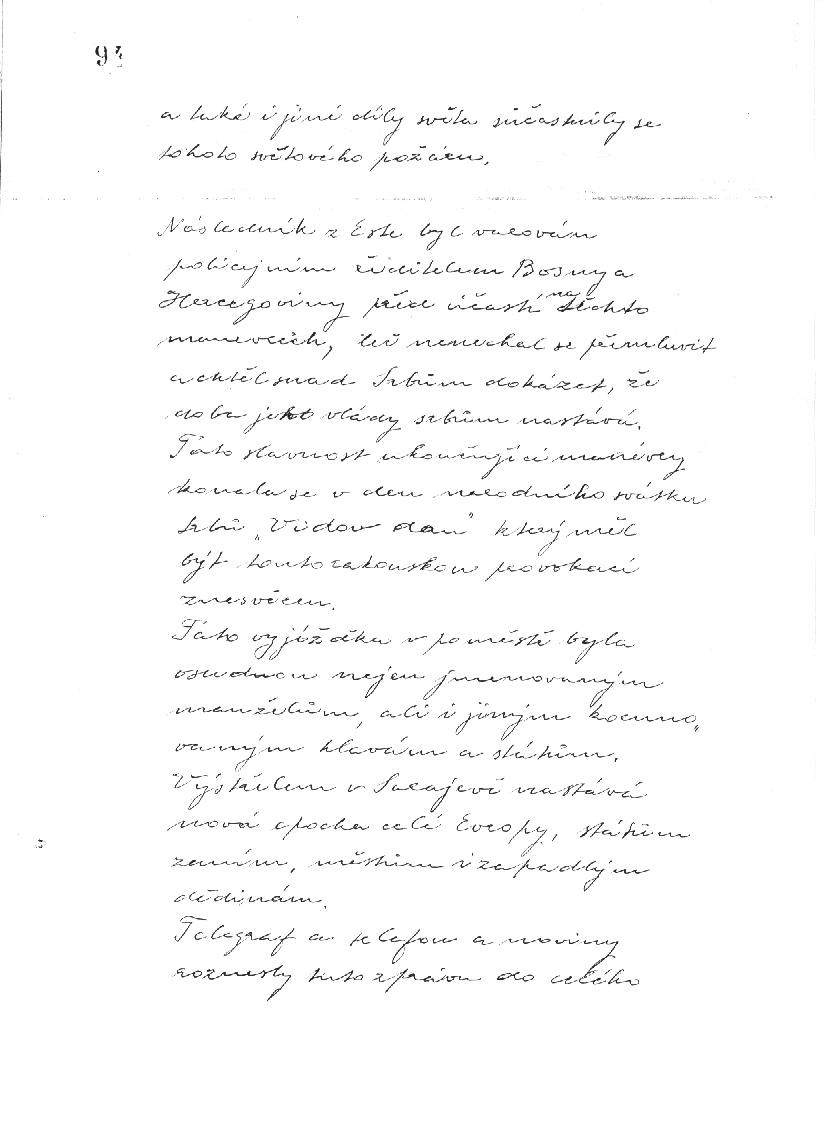 93
a také i jiné díly světa súčastnily se
tohoto světového požáru.
Následník z Este byl varován
policejním ředitelem Bosny a
Hercegoviny před účastí na těchto
manevrech, leč nenechal se přemluvit
a chtěl snad Srbům dokázet, že
doba jeho vlády srbům nastává.
Tato slavnost ukončující manévry
konala se v den národního svátku
Srbů „Vidov dan" který měl
být touto rakouskou provokací
znesvěcen.
Tato vyjížďka v poměstí byla
osudnou nejen jmenovaným
manželům, ali i jiným koruno„
vaným hlavám a státům.
Výstřelem v Sarajevě nastává
nová epocha celé Evropy, státům
zemím, městům i zapadlým
dědinám.
Telegraf a telefon a noviny
roznesly tuto zprávu do celého